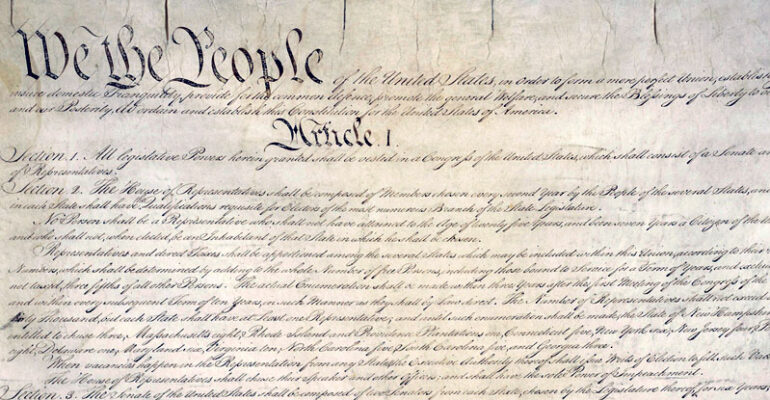 We the People of the United States, in Order to form a more perfect Union, establish
insure domestic Tranquility, provide for the common defence, promote the general Welfare, and secure the Blessings of Liberty to
and our Posterity, do ordain and establish this Constitution for the United States of America.
Article. I.
Section. 1. All legislative Powers herein granted shall be vested in a Congress of the United States, which shall consist of a Senate
of Representatives.
Section. 2. The House of Representatives shall be composed of Members chosen every second Year by the People of the several States, and
in each State shall have Qualifications requisite for Electors of the most numerous Branch of the State Legislature.
No Person shall be a Representative who shall not have attained to the Age of twenty five Years, and been seven Years a Citizen of the
and who shall not, when elected, be an Inhabitant of that State in which he shall be chosen.
Representatives and direct Taxes shall be apportioned among the several States which may be included within this Union, according to their
Numbers, which shall be determined by adding to the whole Number of free Persons, including those bound to Service for a Term of Years, and
not taxed, three fifths of all other Persons. The actual Enumeration shall be made within three Years after the first Meeting of the Congress of the
and within every subsequent Term of ten Years, in such Manner as they shall by Law direct. The Number of Representatives shall not exceed
thirty Thousand, but each State shall have at Least one Representative; and until such enumeration shall be made, the State of New Hampshire
entitled to chuse three, Massachusetts eight, Rhode Island and Providence Plantations one, Connecticut five, New York six, New Jersey four,
eight, Delaware one, Maryland six, Virginia ten, North Carolina five, South Carolina five, and Georgia three.
When vacancies happen in the Representation from any State, the Executive Authority thereof shall issue Writs of Election to fill such
The House of Representatives shall chuse their Speaker and other Officers; and shall have the sole Power of Impeachment.
Section. 3. The Senate of the United States shall be composed of two Senators from each State, chosen by the Legislature thereof, for six Years;